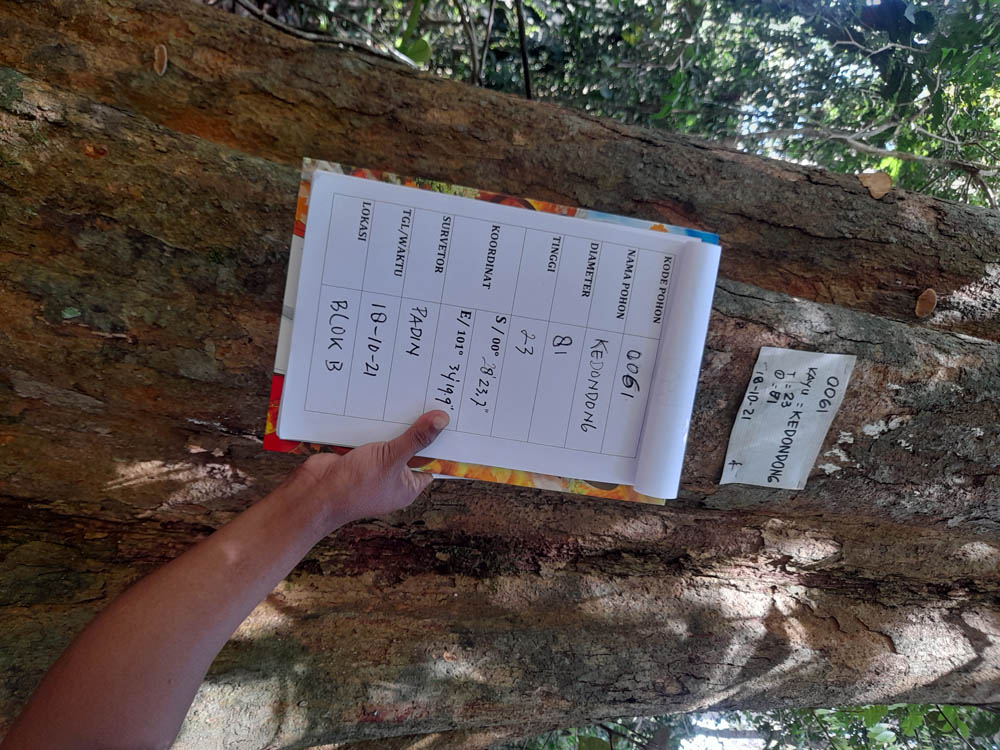 0061
KAYU = KEDONDONG
T = 23
Ø = 81
18-10-21
KODE POHON 0061
NAMA POHON KEDONDONG
DIAMETER 81
TINGGI 23
KOORDINAT S / 00° 28' 23,7"
E/ 101° 34' 19.9"
SURVETOR PADIN
TGL/WAKTU 18-10-21
LOKASI BLOK B